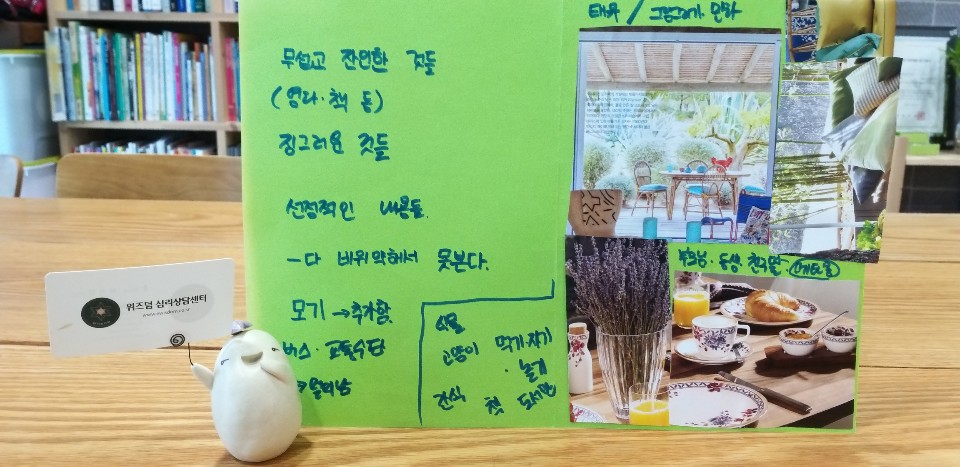 무섭고 잔인한 것들
(영화·책 등)
징그러운 것들
선정적인 내용들.
-다 비위 약해서 못본다.
모기 →추가함.
버스·교통수단
식물
고양이 먹기·자기
·놀기
간식 책 도서관
태유 / 그림그리기 만화
부모님·동생·친구들·
위즈덤 심리상담센터